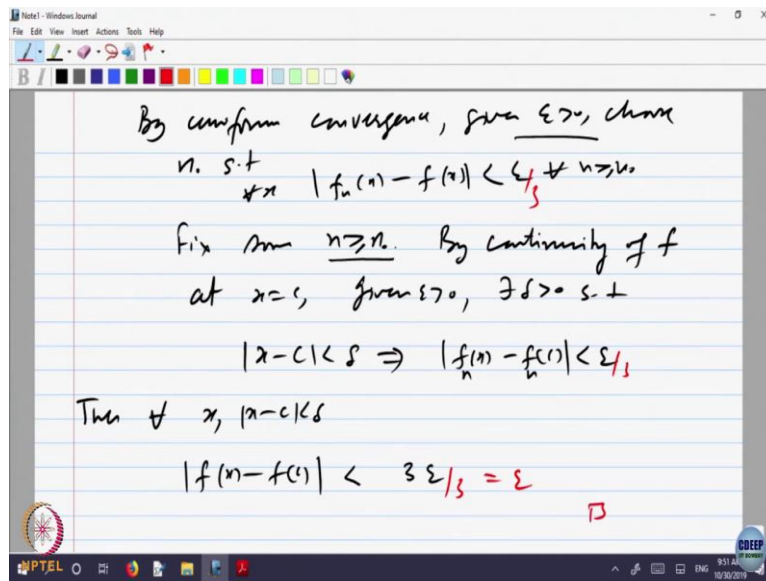 Note1 - Windows Journal
File Edit View Insert Actions Tools Help
B I
By uniform convergence, given ε>0, choose
n₀ s.t
∀x |fₙ(x) - f(x)| < ε/3 ∀ n≥n₀
Fix some n≥n₀. By continuity of f
at x=c, given ε>0, ∃ δ>0 s.t
|x-c|< δ ⇒ |fₙ(x) - fₙ(c)| < ε/3
Then ∀ x, |x-c|<δ
|f(x) - f(c)| < 3 ε/3 = ε
NPTEL
CDEEP
IIT BOMBAY
ENG
9:51 AM
10/30/2019